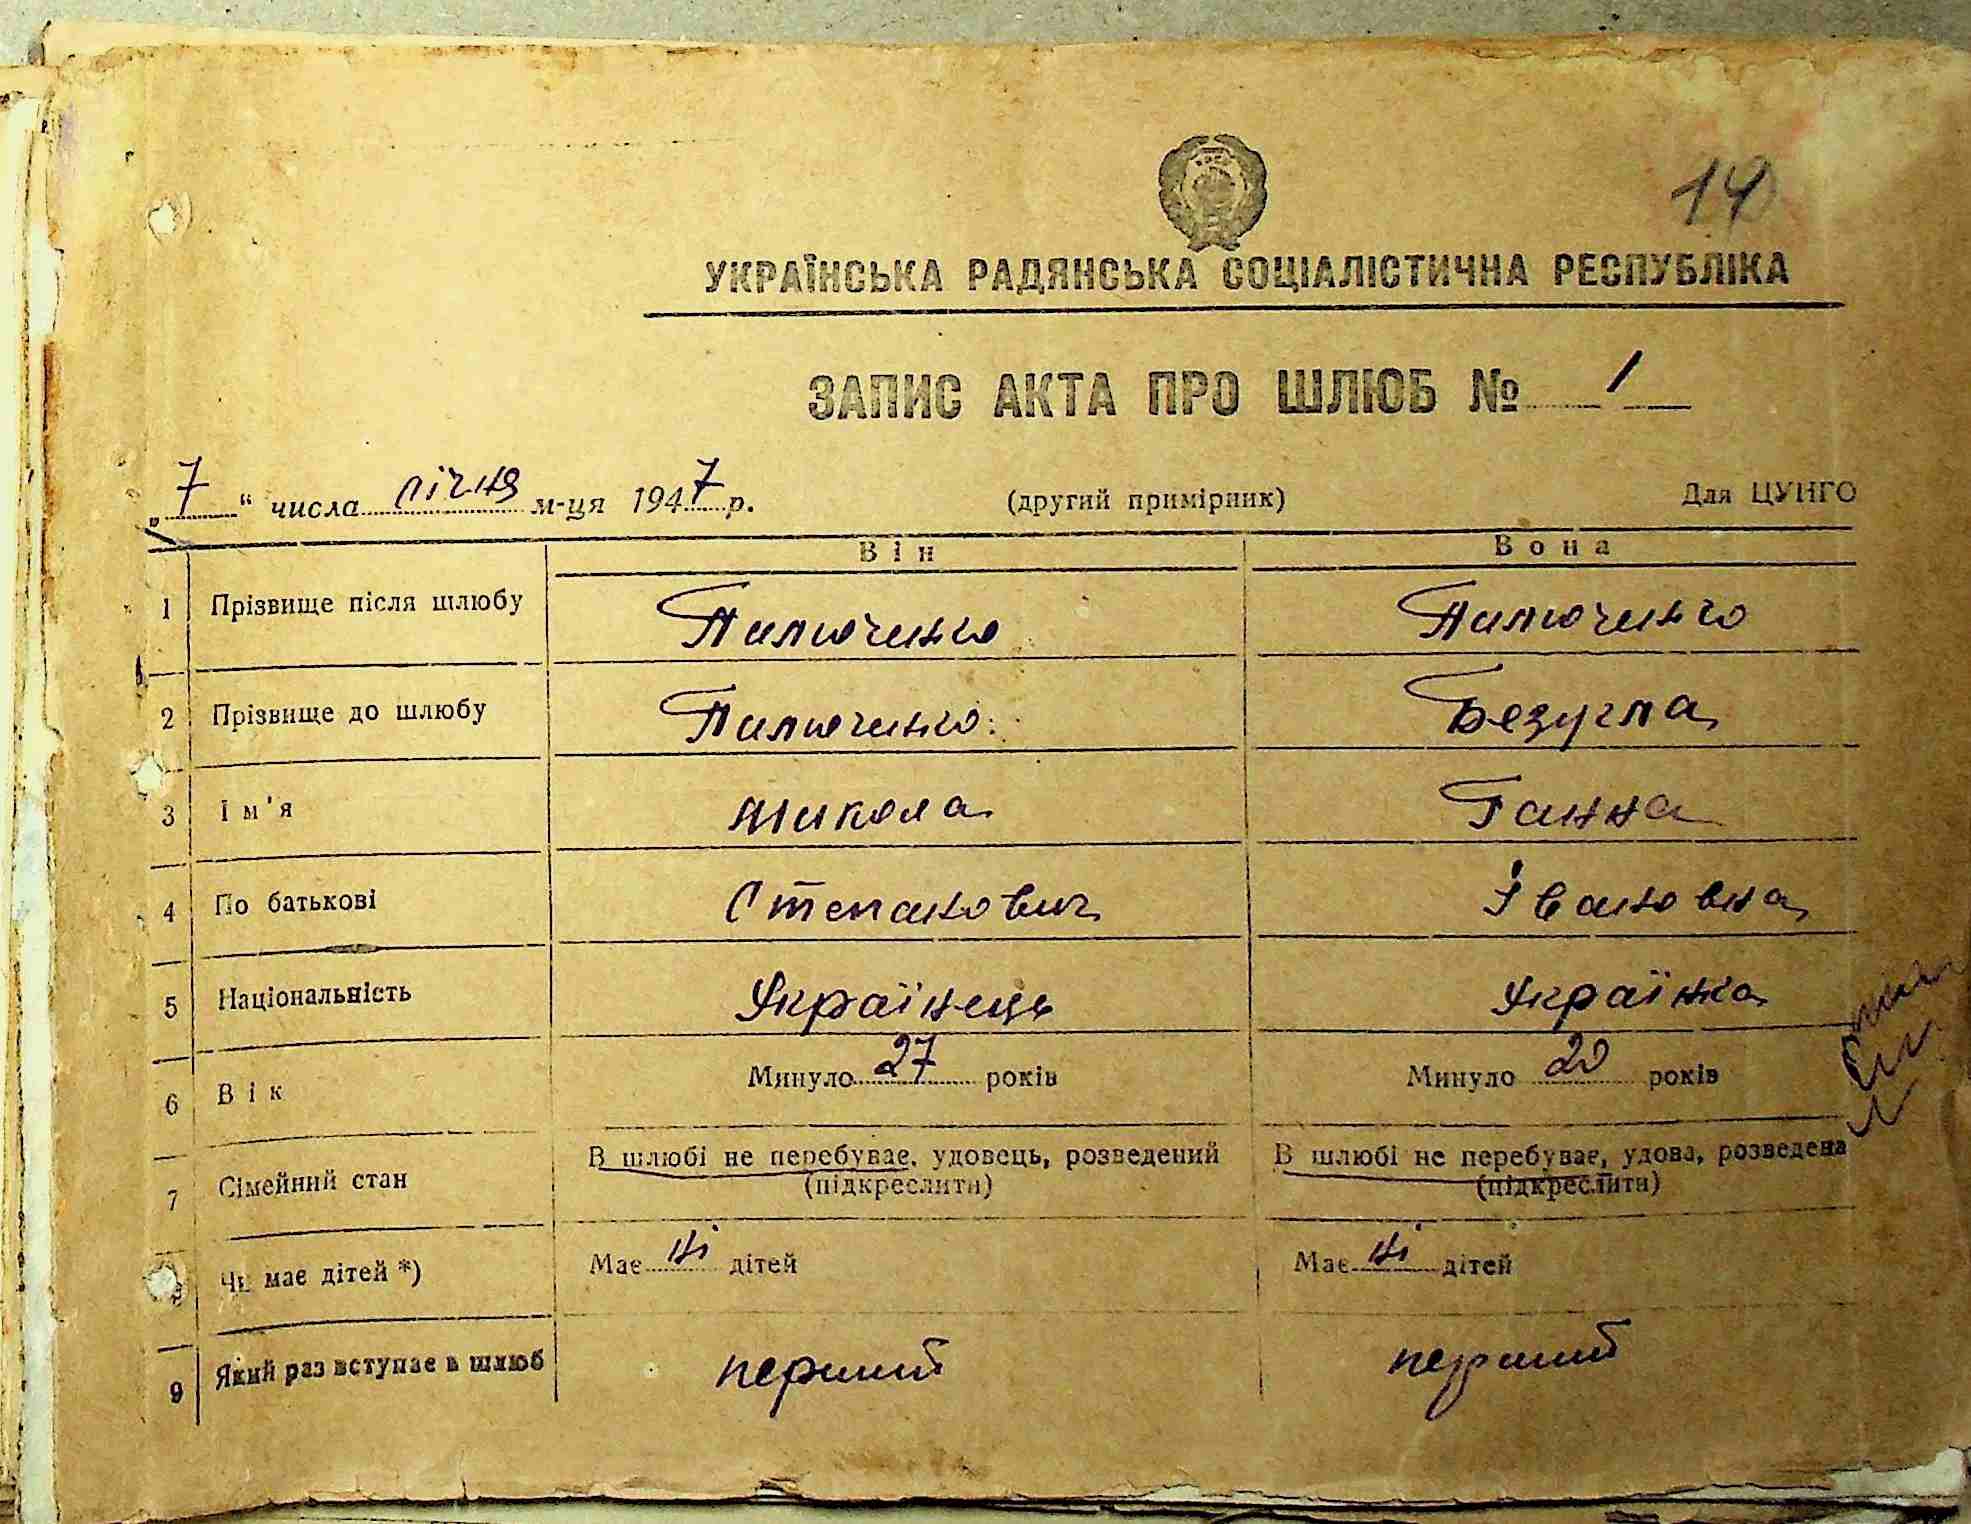 14
УКРАЇНСЬКА РАДЯНСЬКА СОЦІАЛІСТИЧНА РЕСПУБЛІКА
ЗАПИС АКТА ПРО ШЛЮБ № 1
„7“ числа січня м-ця 1947 р. (другий примірник) Для ЦУНГО
Він Вона
1 Прізвище після шлюбу Пилюченко Пилюченко
2 Прізвище до шлюбу Пилюченко Безугла
3 Ім'я Микола Ганна
4 По батькові Степанович Івановна
5 Національність Українець Українка
6 Вік Минуло 27 років Минуло 20 років
7 Сімейний стан В шлюбі не перебуває, удовець, розведений В шлюбі не перебуває, удова, розведена
(підкреслити) (підкреслити)
8 Чи має дітей *) Має ні дітей Має ні дітей
9 Який раз вступає в шлюб перший перший